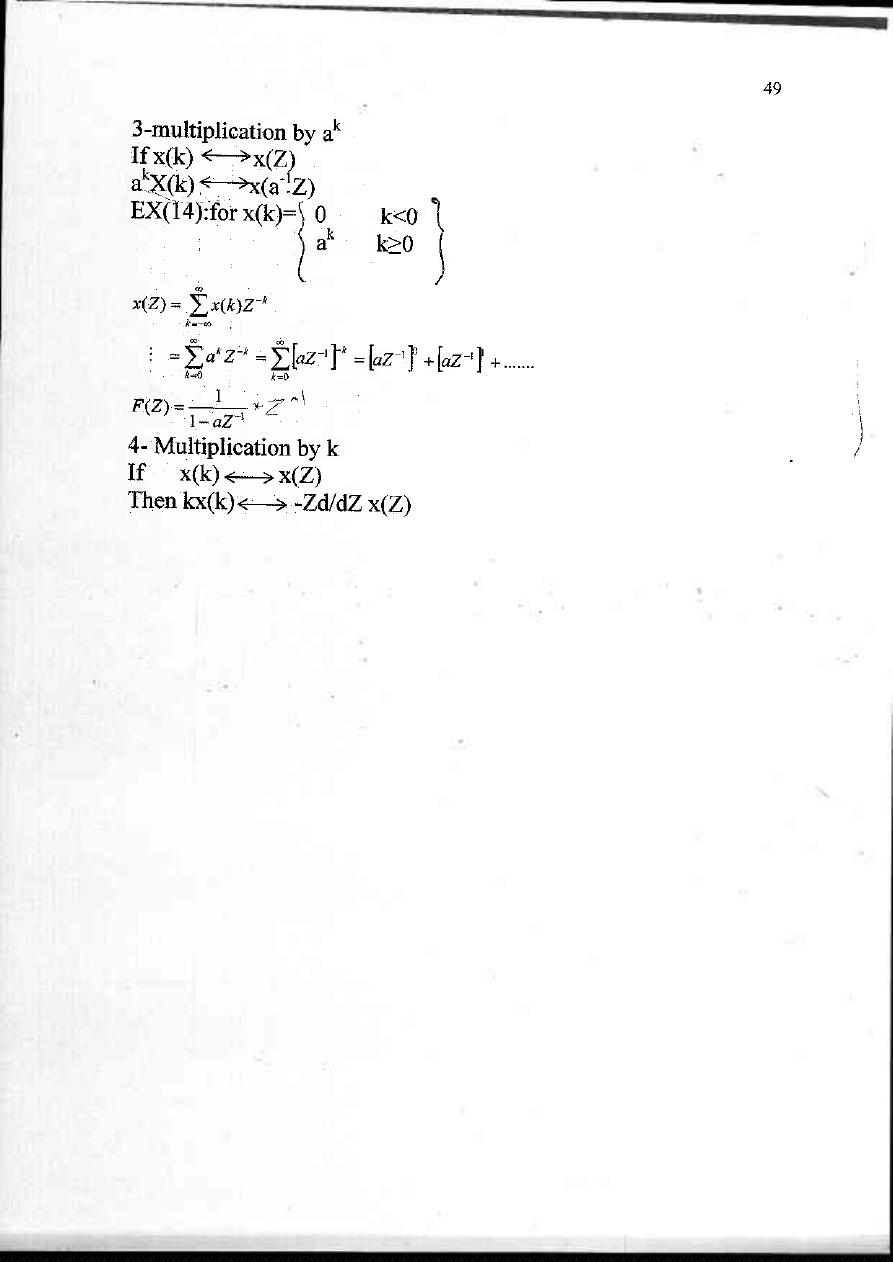 49
3-multiplication by a^k
If x(k) ⟷ x(Z)
a^k X(k) ⟷ x(a^-1 Z)
EX(14):for x(k)={ 0 k<0 }
{ a^k k≥0 }
x(Z) = ∑_{k=-∞}^{∞} x(k)Z^{-k}
⋮ = ∑_{k=0}^{∞} a^k Z^{-k} = ∑_{k=0}^{∞} [aZ^{-1}]^{-k} = [aZ^{-1}]^0 + [aZ^{-1}]^1 + .......
F(Z) = 1/(1-aZ^{-1}) * Z^{-1}
4- Multiplication by k
If x(k) ⟷ x(Z)
Then kx(k) ⟷ -Zd/dZ x(Z)